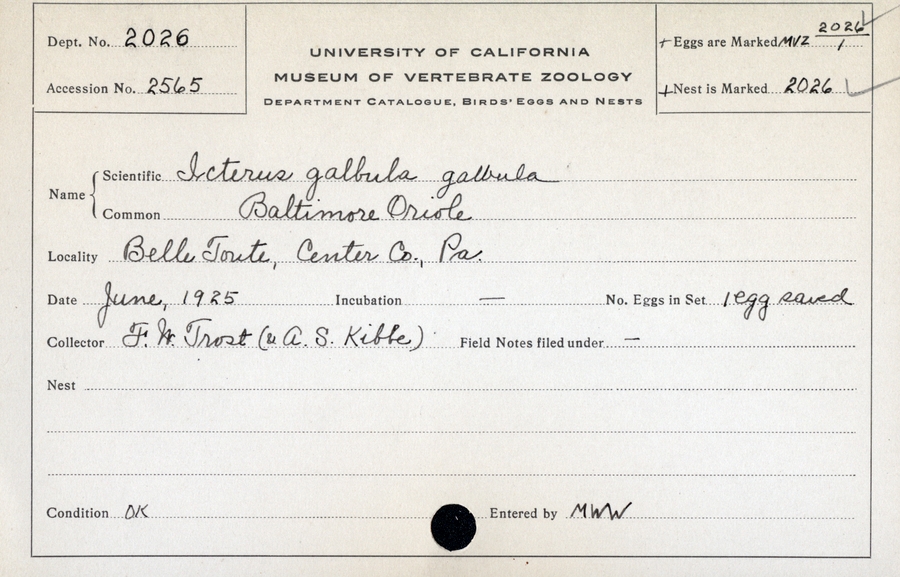 Dept. No. 2026
Accession No. 2565
UNIVERSITY OF CALIFORNIA
MUSEUM OF VERTEBRATE ZOOLOGY
DEPARTMENT CATALOGUE, BIRDS' EGGS AND NESTS
+ Eggs are Marked MVZ 2026/1
+ Nest is Marked 2026
Name
Scientific Icterus galbula galbula
Common Baltimore Oriole
Locality Belle Toute, Center Co., Pa.
Date June, 1925 Incubation — No. Eggs in Set 1 egg saved
Collector F. W. Trost ( A. S. Kibbe) Field Notes filed under —
Nest
Condition OK Entered by MWW